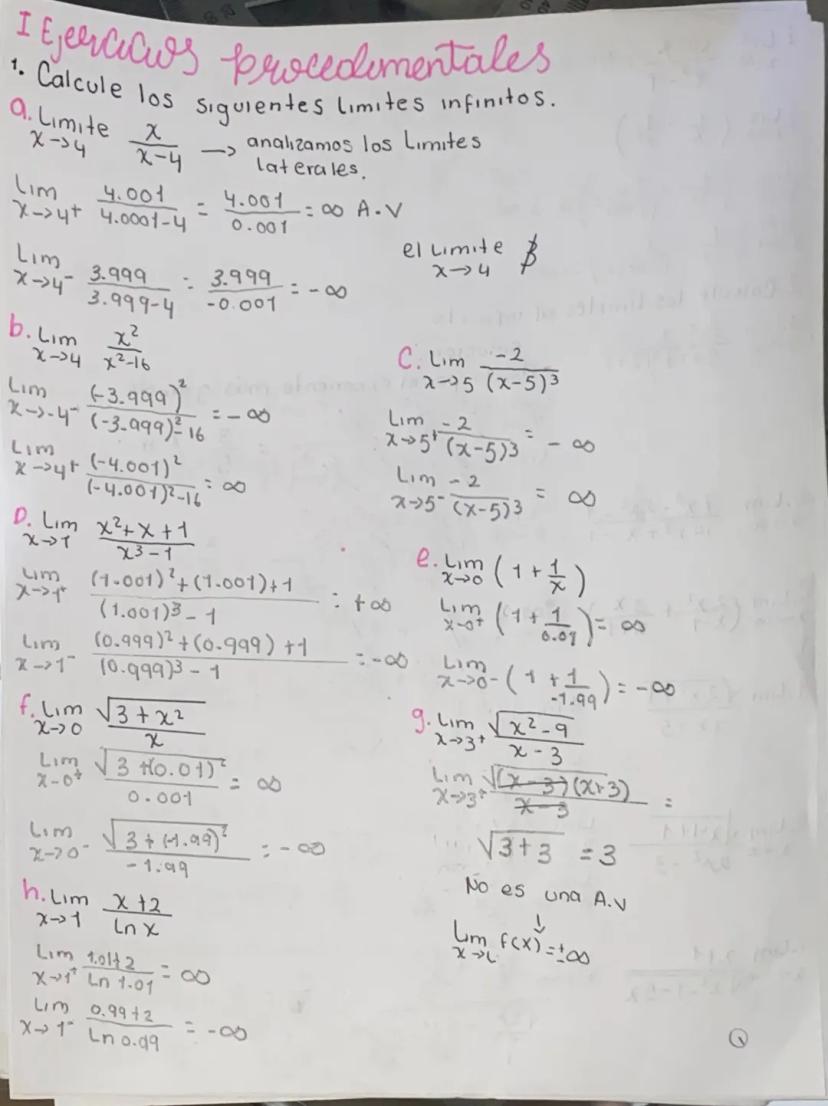 I Ejercicios procedimentales
1. Calcule los siguientes limites infinitos.
a. Limite x→4 x/(x-4) → analizamos los Limites
laterales.
Lim x→4⁺ 4.001/(4.0001-4) = 4.001/0.001 = ∞ A.V
el Limite x→4 ∄
Lim x→4⁻ 3.999/(3.999-4) = 3.999/(-0.001) = -∞
b. Lim x→4 x²/(x²-16)
Lim x→-4⁻ (-3.999)²/((-3.999)²-16) = -∞
Lim x→4⁺ (-4.001)²/((-4.001)²-16) = ∞
C. Lim x→5 -2/(x-5)³
Lim x→5⁺ -2/(x-5)³ = -∞
Lim x→5⁻ -2/(x-5)³ = ∞
D. Lim x→1 (x²+x+1)/(x³-1)
Lim x→1⁺ ((1.001)²+(1.001)+1)/((1.001)³-1) = +∞
Lim x→1⁻ ((0.999)²+(0.999)+1)/((0.999)³-1) = -∞
e. Lim x→0 (1+1/x)
Lim x→0⁺ (1+1/0.01) = ∞
Lim x→0⁻ (1+1/-1.99) = -∞
f. Lim x→0 √(3+x²)/x
Lim x→0⁺ √(3+(0.01)²)/0.001 = ∞
Lim x→0⁻ √(3+(-1.99)²)/-1.99 = -∞
g. Lim x→3⁺ √(x²-9)/(x-3)
Lim x→3⁺ √((x-3)(x+3))/(x-3) =
√(3+3) = 3
No es una A.V
↓
Lim x→c f(x) = ±∞
h. Lim x→1 (x+2)/Ln x
Lim x→1⁺ (1.01+2)/Ln 1.01 = ∞
Lim x→1⁻ (0.99+2)/Ln 0.99 = -∞